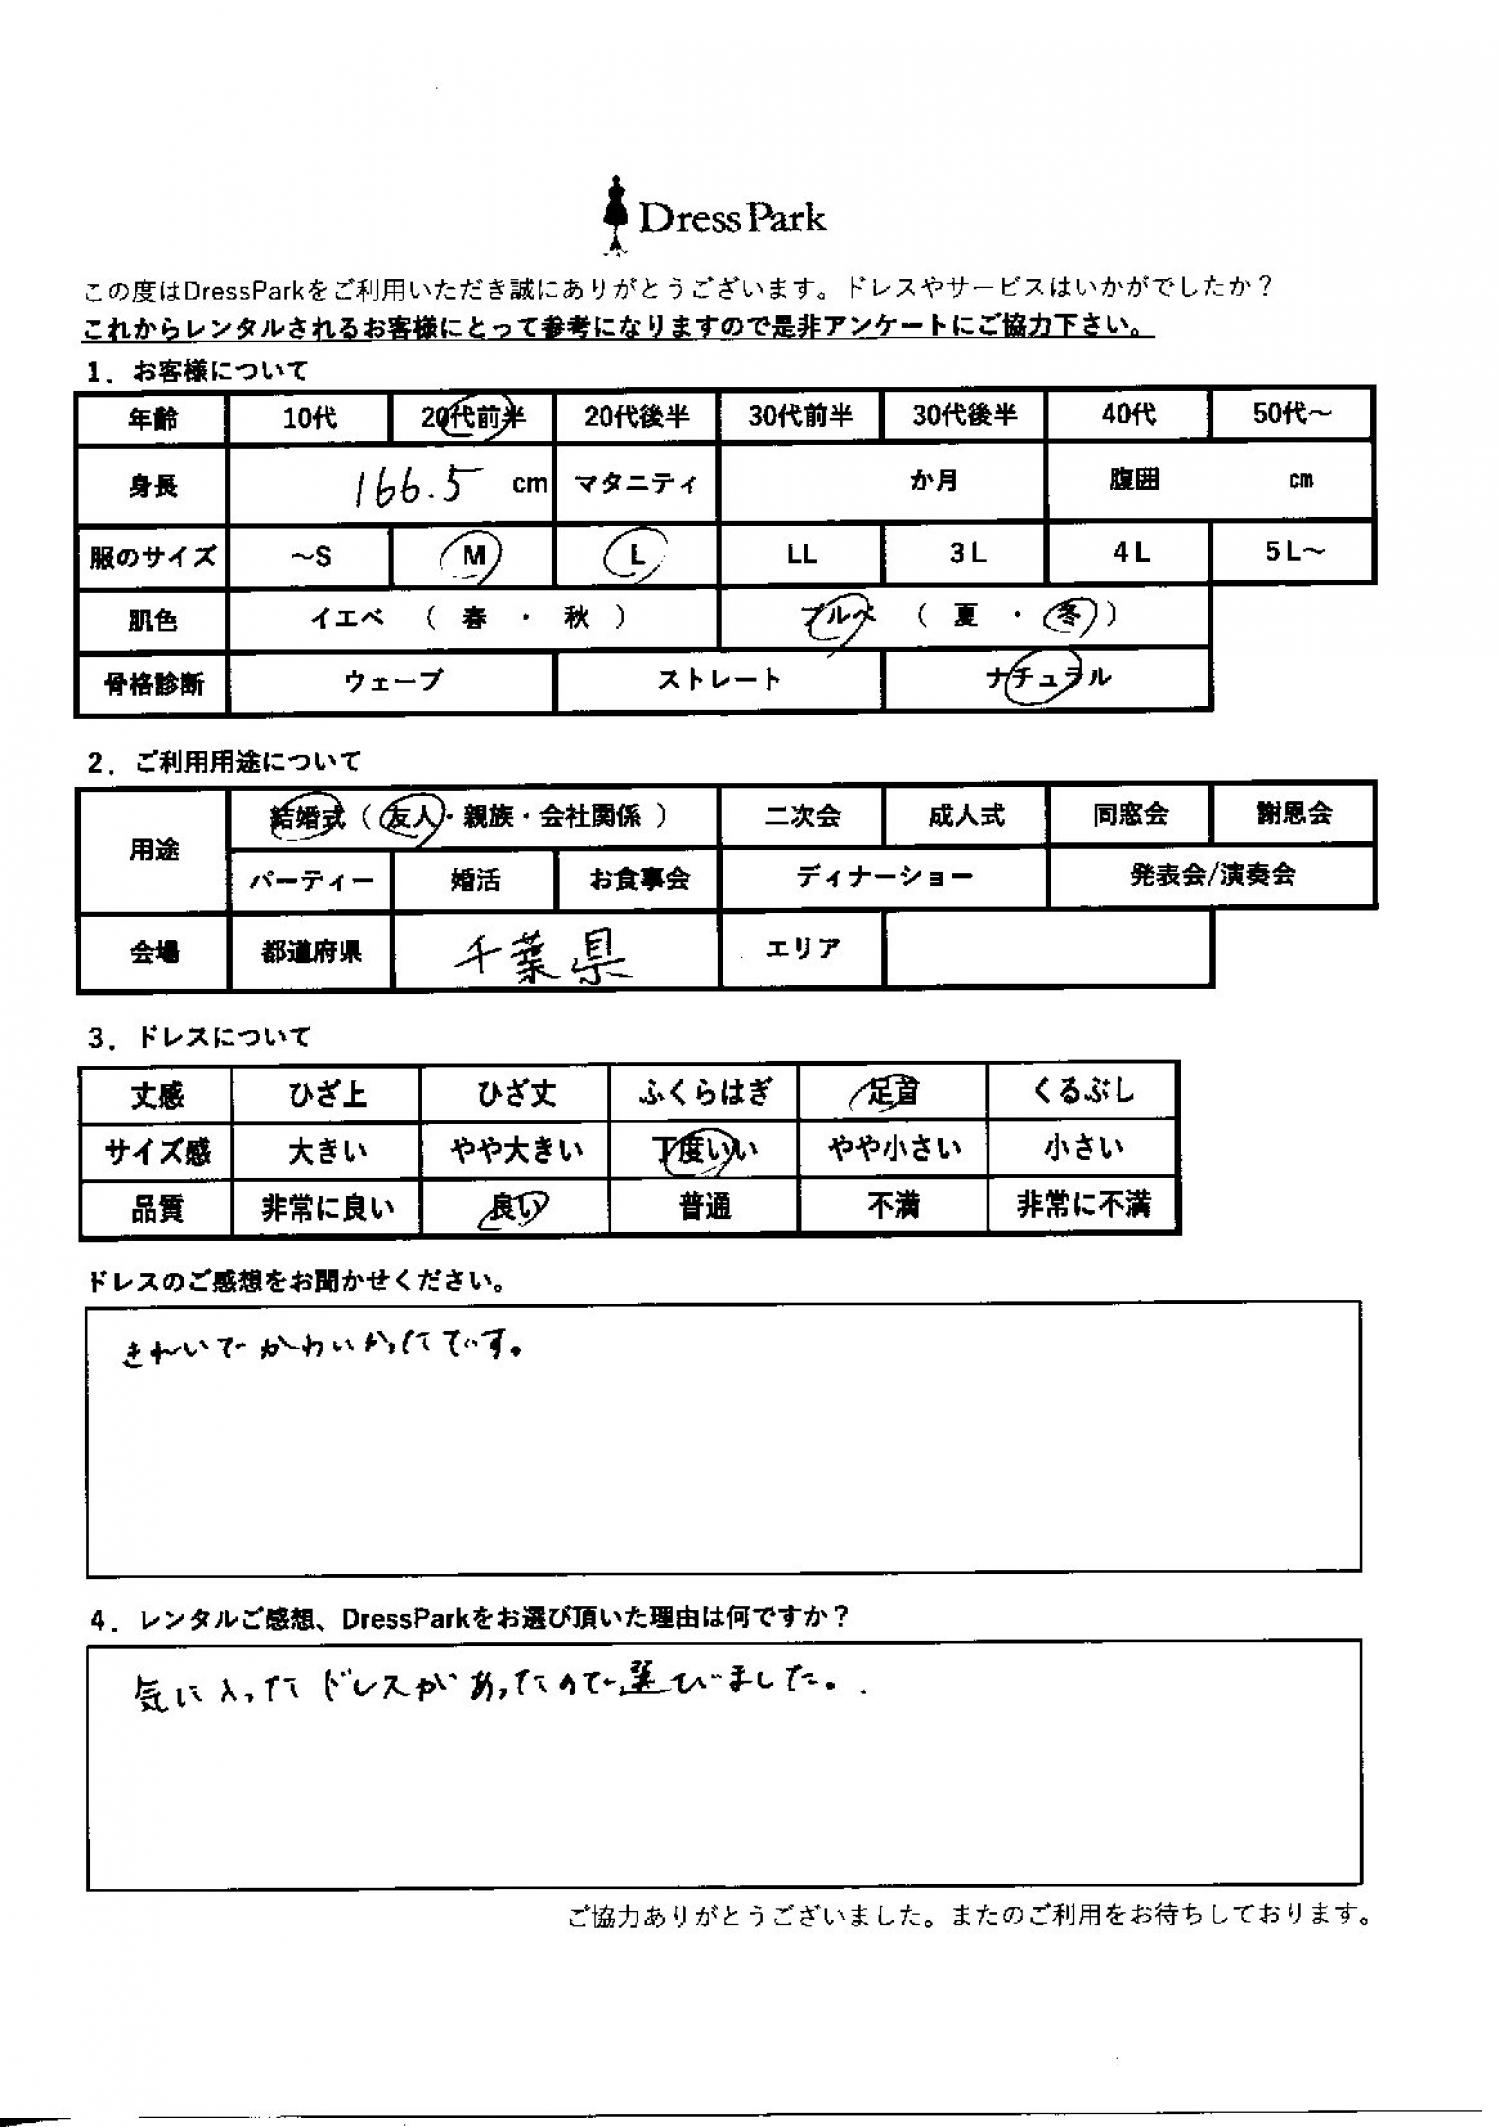 Dress Park
この度はDressParkをご利用いただき誠にありがとうございます。ドレスやサービスはいかがでしたか？
これからレンタルされるお客様にとって参考になりますので是非アンケートにご協力下さい。
1．お客様について
年齢 10代 20代前半 20代後半 30代前半 30代後半 40代 50代～
身長 166.5 cm マタニティ か月 腹囲 cm
服のサイズ ～S M L LL 3L 4L 5L～
肌色 イエベ （ 春 ・ 秋 ） ブルベ （ 夏 ・ 冬 ）
骨格診断 ウェーブ ストレート ナチュラル
2．ご利用用途について
用途 結婚式（ 友人・親族・会社関係 ） 二次会 成人式 同窓会 謝恩会
パーティー 婚活 お食事会 ディナーショー 発表会/演奏会
会場 都道府県 千葉県 エリア
3．ドレスについて
丈感 ひざ上 ひざ丈 ふくらはぎ 足首 くるぶし
サイズ感 大きい やや大きい 丁度いい やや小さい 小さい
品質 非常に良い 良い 普通 不満 非常に不満
ドレスのご感想をお聞かせください。
きれいでかわいかったです。
4．レンタルご感想、DressParkをお選び頂いた理由は何ですか？
気に入ったドレスがあったので選びました。
ご協力ありがとうございました。またのご利用をお待ちしております。